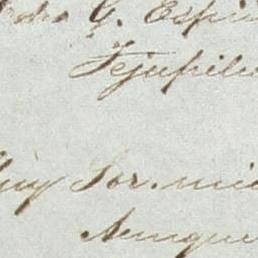 G. Espin
Tejupilc
uy Sor. mio
Aunque